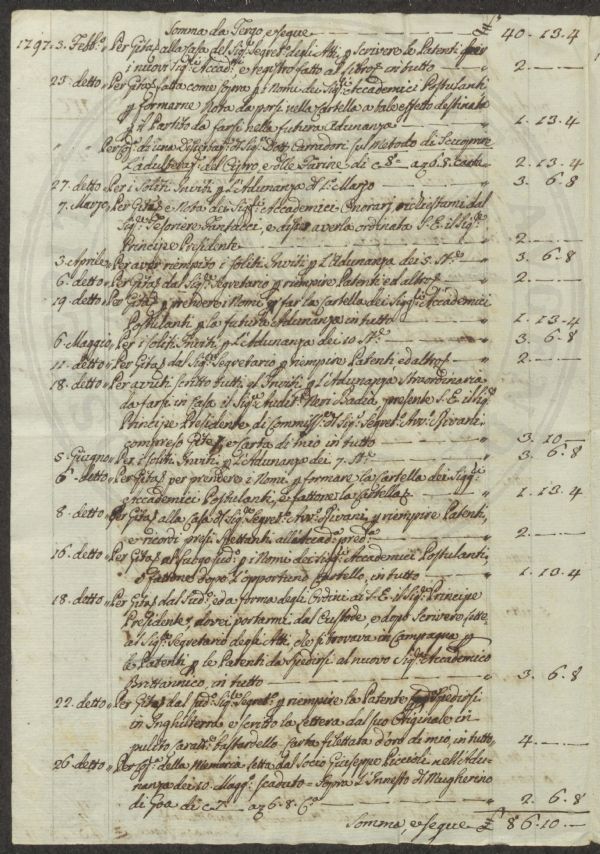 Somma da Tergo, e segue — £ 40. 13. 4
1797. 3. Febb.º „ Per Gita alla Casa del Sig.e Segret.º degli Atti p scrivere le Patenti per
i nuovi Sig.i Accad.i e registro fatto al libro, in tutto — „ 2. —
25. detto „ Per Gita fatta come sopra p i Nomi dei Sig.i Accademici Postulanti
p formarne Nota da porsi nella Cartella a tale effetto destinata
p il Partito da farsi nella futura Adunanza — „ 1. 13. 4
„ „ Per Cop.a di una Dissertaz. del Sig.e Dott. Carradori sul Metodo di Scuoprire
l'adulteraz. del Cipro e delle Farine di c. 8. a £ 6. 8. carta — „ 2. 13. 4
27. detto „ Per i Soliti Inviti p l'Adunanza di Marzo — „ 3. 6. 8
7. Marzo „ Per Gita e Nota dei Sig.i Accademici Onorarj richiestami dal
Sig.e Tesoriere, e averla ordinata S. E. il Sig.e
Principe Presidente — 2. —
3. Aprile „ Per aver riempito i soliti Inviti p l'Adunanza dei 5. St.e — „ 3. 6. 8
6. detto „ Per Gita dal Sig.e Segretario p riempire Patenti ed altro — „ 2. —
19. detto „ Per Gita p prendere i Nomi p far la Cartella dei Sig.i Accademici
Postulanti p la futura Adunanza in tutto — „ 1. 13. 4
6. Maggio „ Per i soliti Inviti p l'Adunanza dei 10. St.e — „ 3. 6. 8
11. detto „ Per Gita dal Sig.e Segretario p riempire Patenti, ed altro — „ 2. —
18. detto „ Per aver scritto tutti gl'Inviti p l'Adunanza Straordinaria
da farsi in Casa il Sig.e Audit.e Neri Badia, presente S. E. il Sig.e
Principe Presidente di Commiss.e del Sig.e Segret.º Avv.º Rivani,
compreso Gite, e Carta di mio in tutto — „ 3. 10 —
5. Giugno „ Per i soliti Inviti p l'Adunanza dei 7. St.e — „ 3. 6. 8
6. detto „ Per Gita per prendere i Nomi, p formare la Cartella dei Sig.i
Accademici Postulanti, e fattone la Cartella — „ 1. 13. 4
8. detto „ Per Gita alla Casa del Sig.e Segret.º Avv.º Rivani, p riempire Patenti,
e ricordi presi spettanti all'Accad.a pred.a — „ 2. —
16. detto „ Per Gita al luogo sud.º p i Nomi dei Sig.i Accademici Postulanti,
e fattone dopo l'opportuno Cartello, in tutto — „ 1. 13. 4
18. detto „ Per Gita dal Sud.º, ed a forma degli Ordini di S. E. il Sig.e Principe
Presidente, dovei portarmi dal Custode, e dopo Scrivere lettere
al Sig.e Segretario degli Atti, che si trovava in Campagna p
le Patenti, p le Patenti da spedirsi al nuovo Sig.e Accademico
Brittannico, in tutto — „ 3. 6. 8
22. detto „ Per Gita dal sud.º Sig.e Segret.º p riempire la Patente spedirsi
in Inghilterra e scritto la Lettera dal suo Originale in
pulito Caratt.e Bastardello Carta filettata d'oro di mio, in tutto „ 4. —
26. detto „ Per Cop.a della Memoria letta dal Socio Giuseppe Piccioli nell'Adu-
nanza dei 10. Magg.º Scaduto Sopra l'Innesto del Mugherino
di Goa di c. 7. a £ 6. 8. C.a — „ 2. 6. 8
Somma, e segue £ 86. 10. —